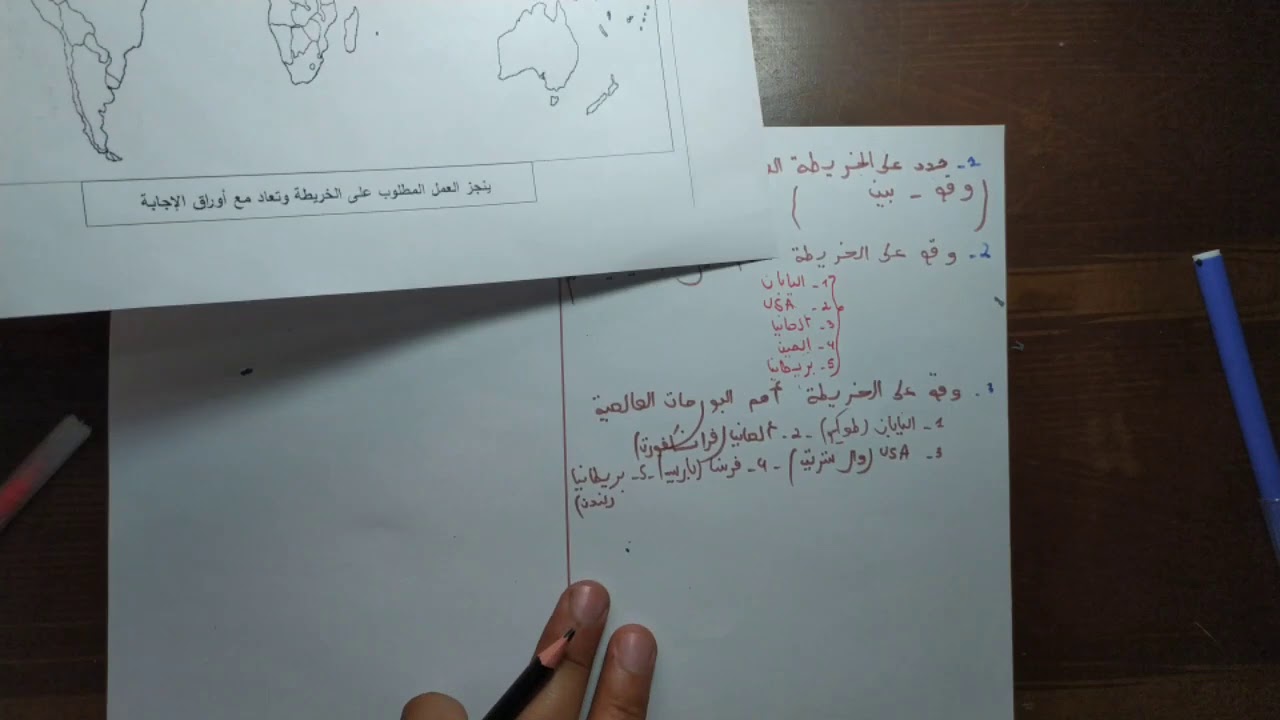 ينجز العمل المطلوب على الخريطة وتعاد مع أوراق الإجابة
1- حدد على الخريطة
(وقع - بين )
2- وقع على الخريطة
1- اليابان
2- USA
3- ألمانيا
4- الصين
5- بريطانيا
وقع على الخريطة أهم البورصات العالمية
1- اليابان (طوكيو) - 2- ألمانيا (فرانكفورت)
3- USA (وال ستريت) - 4- فرنسا (باريس) - 5- بريطانيا
(لندن)